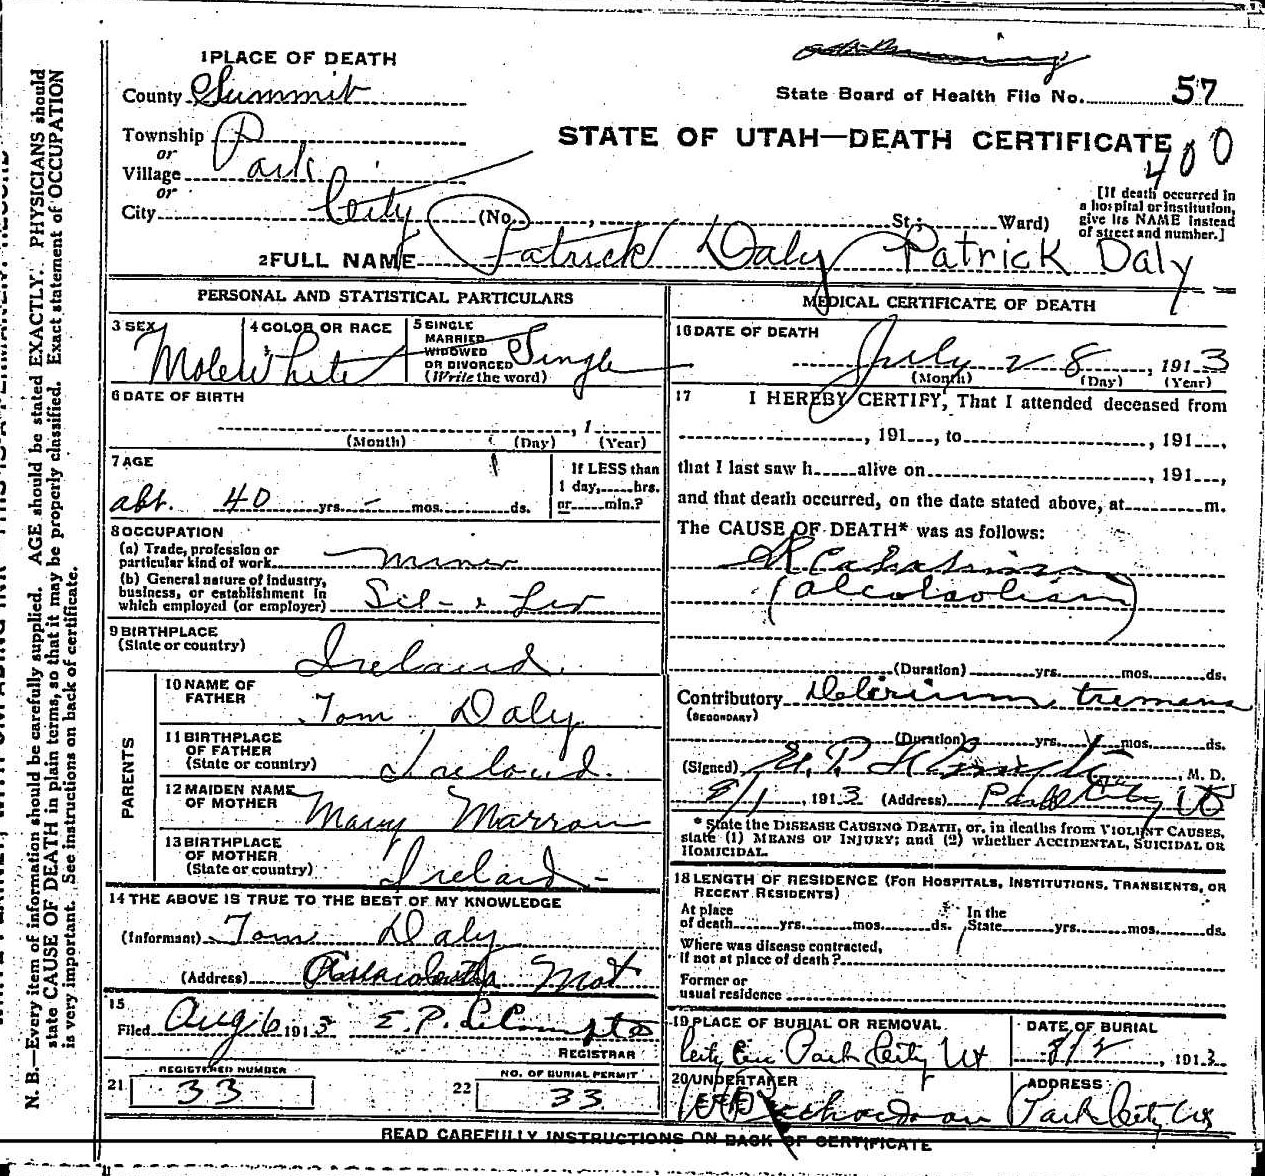 1 PLACE OF DEATH
County Summit
State Board of Health File No. 57
Township Park
or
Village
or
City City (No. , St.; Ward)
STATE OF UTAH—DEATH CERTIFICATE
400
[If death occurred in
a hospital or institution,
give its NAME instead
of street and number.]
2 FULL NAME Patrick Daly Patrick Daly
PERSONAL AND STATISTICAL PARTICULARS
3 SEX Male
4 COLOR OR RACE White
5 SINGLE
MARRIED
WIDOWED
OR DIVORCED
(Write the word) Single
6 DATE OF BIRTH
, 1
(Month) (Day) (Year)
7 AGE
abt. 40 yrs. - mos. ds.
If LESS than
1 day, hrs.
or min.?
8 OCCUPATION
(a) Trade, profession or
particular kind of work miner
(b) General nature of industry,
business, or establishment in
which employed (or employer)
9 BIRTHPLACE
(State or country) Ireland
PARENTS
10 NAME OF
FATHER Tom Daly
11 BIRTHPLACE
OF FATHER
(State or country) Ireland
12 MAIDEN NAME
OF MOTHER Mary Marron
13 BIRTHPLACE
OF MOTHER
(State or country) Ireland -
14 THE ABOVE IS TRUE TO THE BEST OF MY KNOWLEDGE
(Informant) Tom Daly
(Address) Mont
15
Filed Aug 6 1913 E. P. LeCompte
REGISTRAR
REGISTERED NUMBER
21 33
NO. OF BURIAL PERMIT
22 33
MEDICAL CERTIFICATE OF DEATH
16 DATE OF DEATH
July 28, 1913
(Month) (Day) (Year)
17 I HEREBY CERTIFY, That I attended deceased from
, 191 , to , 191 ,
that I last saw h alive on , 191 ,
and that death occurred, on the date stated above, at m.
The CAUSE OF DEATH* was as follows:
(alcoholism)
(Duration) yrs. mos. ds.
Contributory Delirium tremens
(SECONDARY)
(Duration) yrs. mos. ds.
(Signed) E. P. LeCompte, M. D.
8/1, 1913 (Address) Park City Ut
* State the DISEASE CAUSING DEATH, or, in deaths from VIOLENT CAUSES,
state (1) MEANS OF INJURY; and (2) whether ACCIDENTAL, SUICIDAL OR
HOMICIDAL.
18 LENGTH OF RESIDENCE (FOR HOSPITALS, INSTITUTIONS, TRANSIENTS, OR
RECENT RESIDENTS)
At place
of death yrs. mos. ds.
In the
State yrs. mos. ds.
Where was disease contracted,
if not at place of death?
Former or
usual residence
19 PLACE OF BURIAL OR REMOVAL
City Cem Park City Ut
DATE OF BURIAL
8/2, 1913
20 UNDERTAKER
Richardson
ADDRESS
Park City Ut
READ CAREFULLY INSTRUCTIONS ON BACK OF CERTIFICATE
N. B.—Every item of information should be carefully supplied. AGE should be stated EXACTLY. PHYSICIANS should
state CAUSE OF DEATH in plain terms, so that it may be properly classified. Exact statement of OCCUPATION
is very important. See instructions on back of certificate.